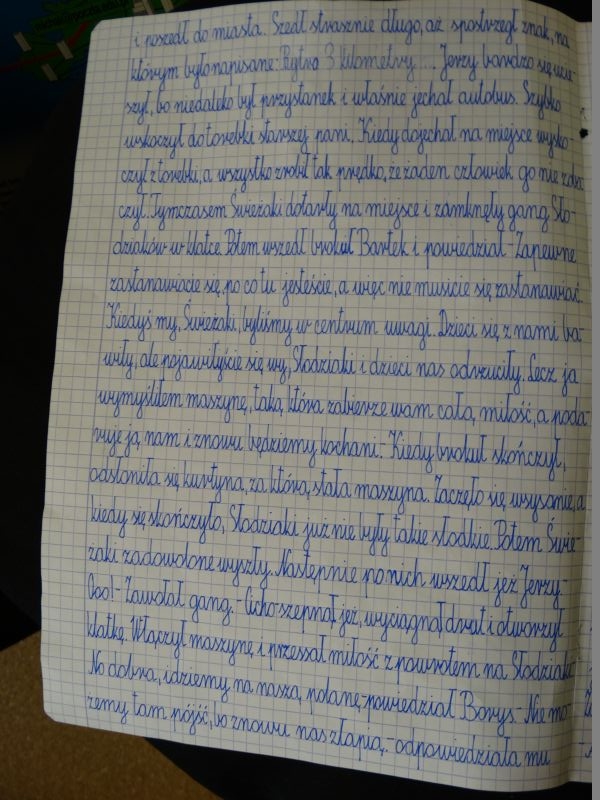 i poszedł do miasta. Szedł strasznie długo, aż spostrzegł znak, na
którym było napisane: Rytro 3 kilometry... Jerzy bardzo się ucie-
szył, bo niedaleko był przystanek i właśnie jechał autobus. Szybko
wskoczył do torebki starszej pani. Kiedy dojechał na miejsce wysko-
czył z torebki, a wszystko zrobił tak prędko, że żaden człowiek go nie zoba
czył. Tymczasem Świeżaki dotarły na miejsce i zamknęły gang Sło-
dziaków w klatce. Potem wszedł brokuł Bartek i powiedział - Zapewne
zastanawiacie się, po co tu jesteście, a więc nie musicie się zastanawiać.
Kiedyś my, Świeżaki, byliśmy w centrum uwagi. Dzieci się z nami ba-
wiły, ale pojawiłyście się wy, Słodziaki i dzieci nas odrzuciły. Lecz ja
wymyśliłem maszynę, taką, która zabierze wam całą miłość, a poda-
ruje ją nam i znowu będziemy kochani. Kiedy brokuł skończył,
odsłoniła się kurtyna, za którą stała maszyna. Zaczęło się wsysanie, a
kiedy się skończyło, Słodziaki już nie były takie słodkie. Potem Świe-
żaki zadowolone wyszły. Następnie po nich wszedł jeż Jerzy-
Ooo! - Zawołał gang. - Cicho - szepnął jeż, wyciągnął drut i otworzył
klatkę. Włączył maszynę i przessał miłość z powrotem na Słodziaki
No dobra, idziemy na naszą polanę - powiedział Borys. - Nie mo-
żemy tam pójść, bo znowu nas złapią. - odpowiedziała mu